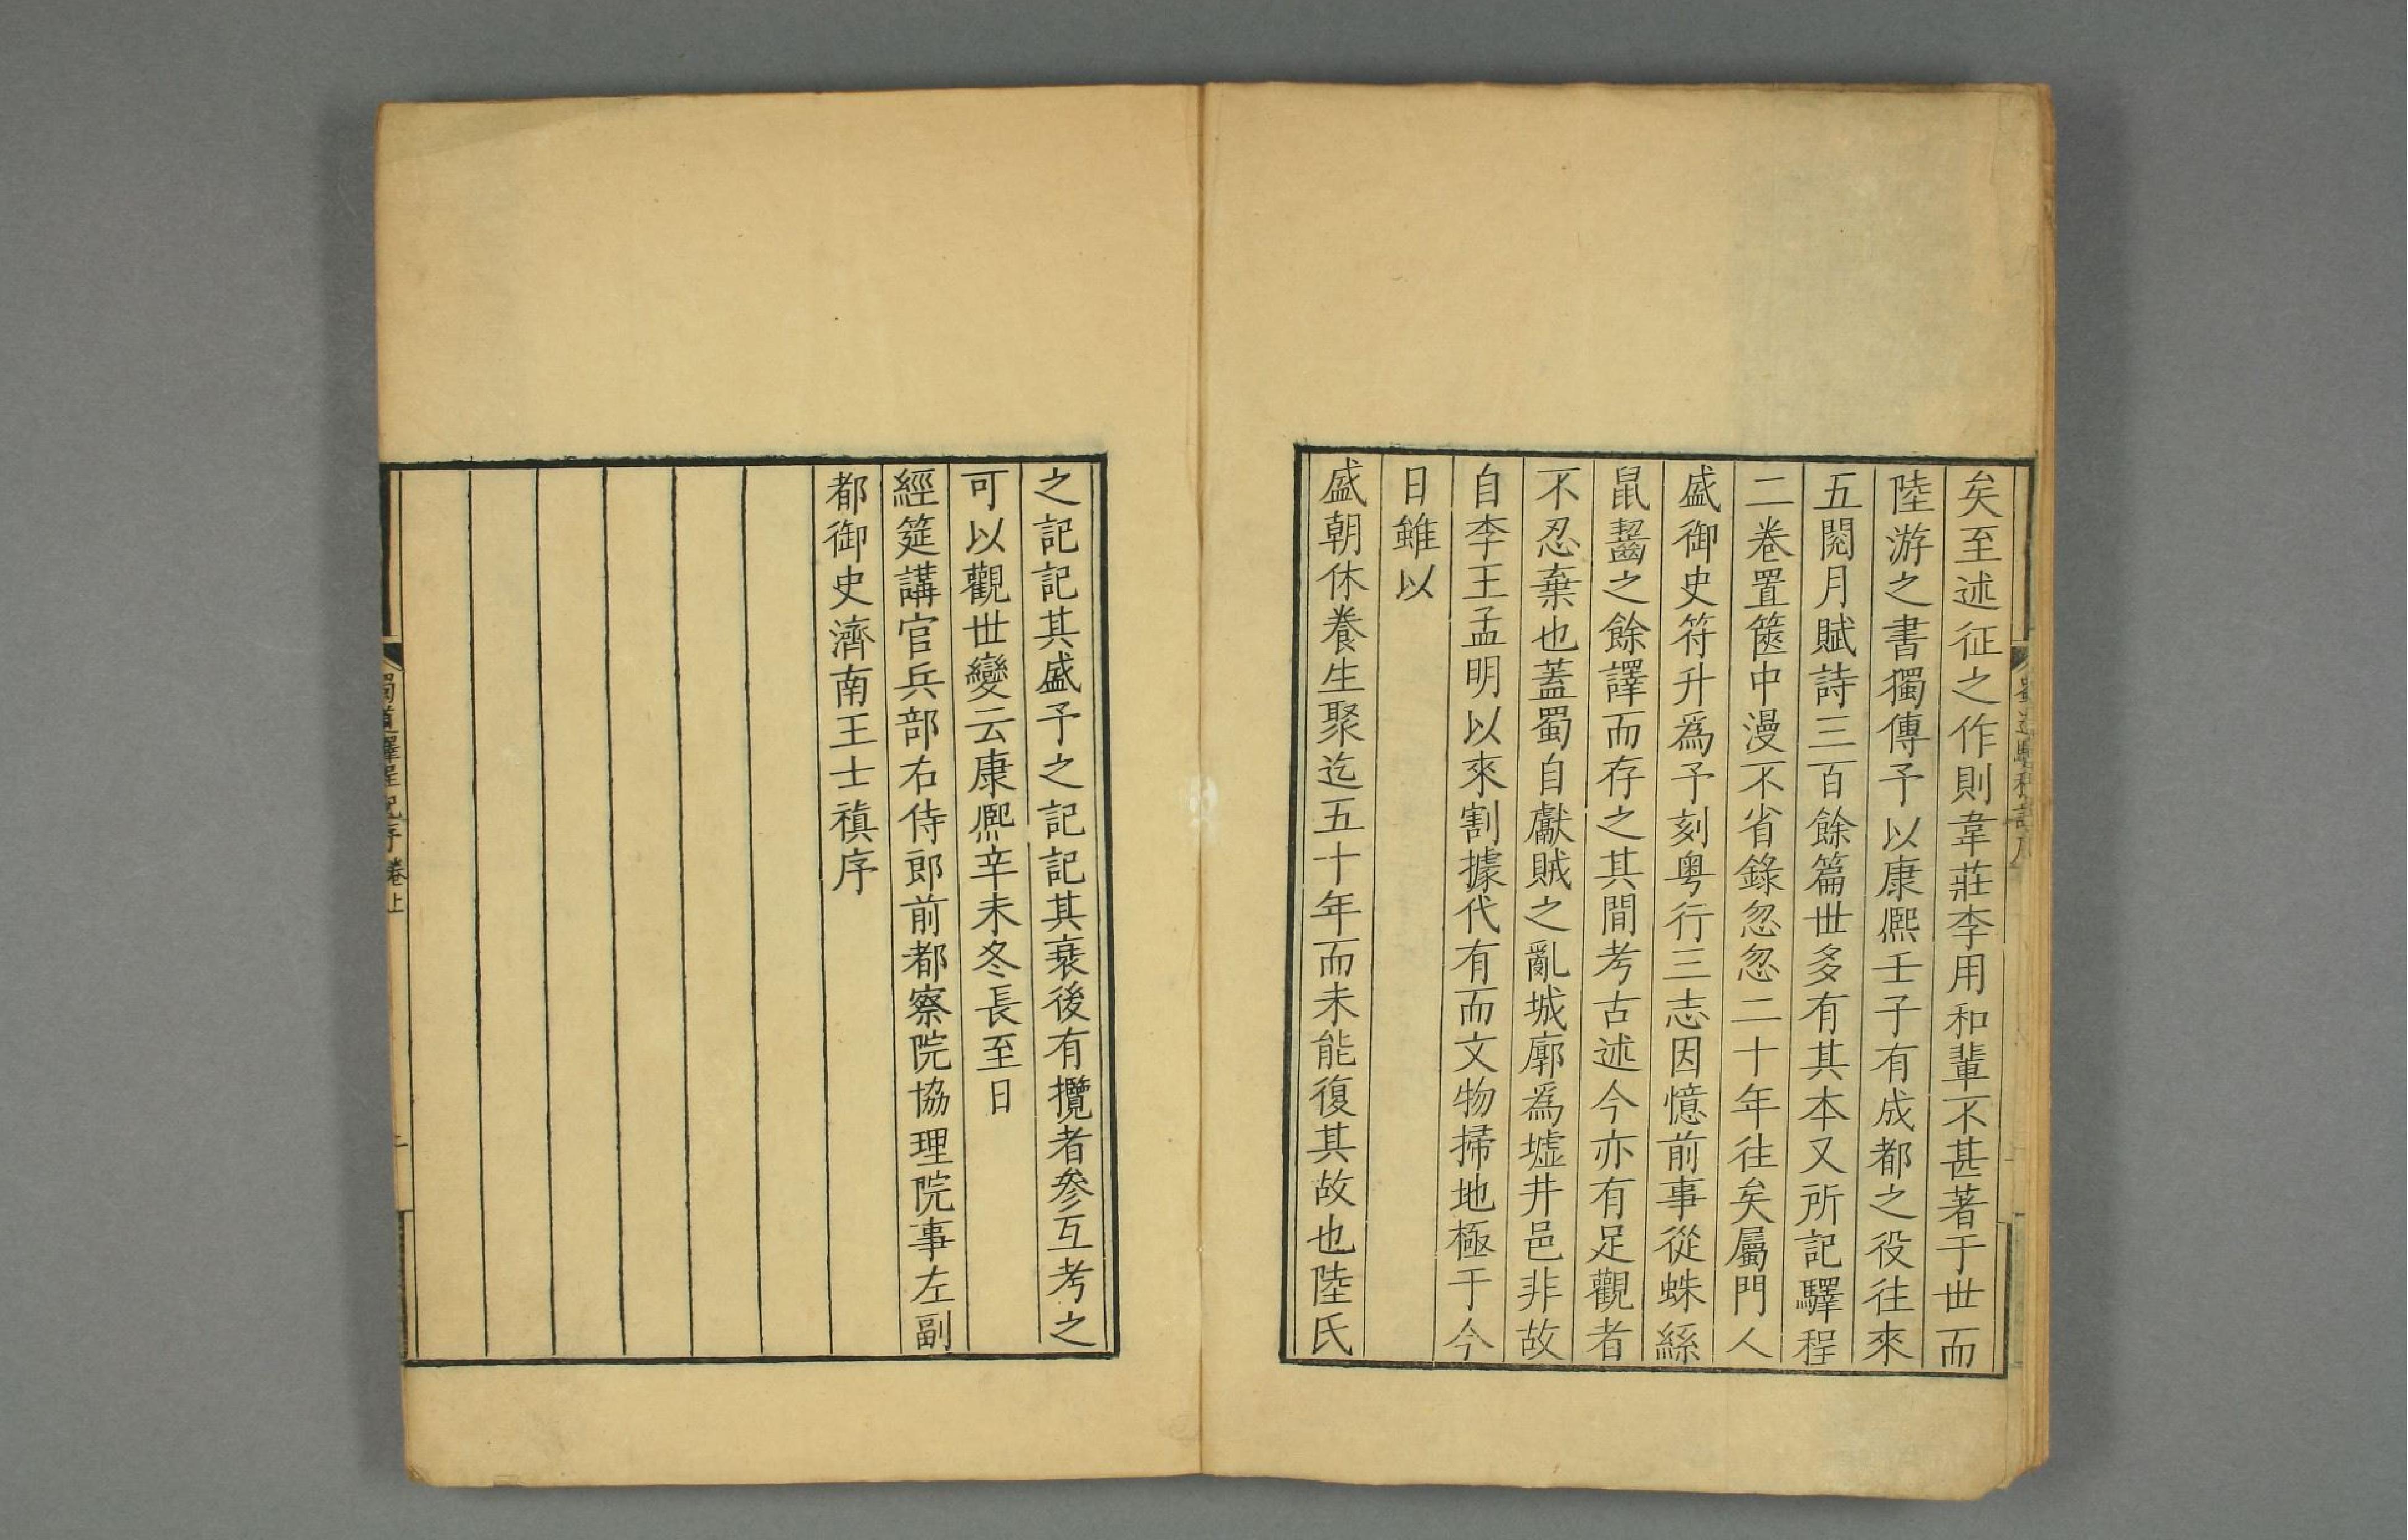 矣至述征之作則韋莊李用和輩不甚著于世而
陸游之書獨傳予以康熙壬子有成都之役往來
五閱月賦詩三百餘篇世多有其本又所記驛程
二卷置篋中漫不省錄忽忽二十年往矣屬門人
盛御史符升為予刻粤行三志因憶前事從蛛絲
鼠齧之餘譯而存之其間考古述今亦有足觀者
不忍棄也蓋蜀自獻賊之亂城廓為墟井邑非故
自李王孟明以來割據代有而文物掃地極于今
日雖以
盛朝休養生聚迄五十年而未能復其故也陸氏
之記記其盛予之記記其衰後有攬者參互考之
可以觀世變云康熙辛未冬長至日
經筵講官兵部右侍郎前都察院協理院事左副
都御史濟南王士禛序
蜀道驛程記序 卷上 二